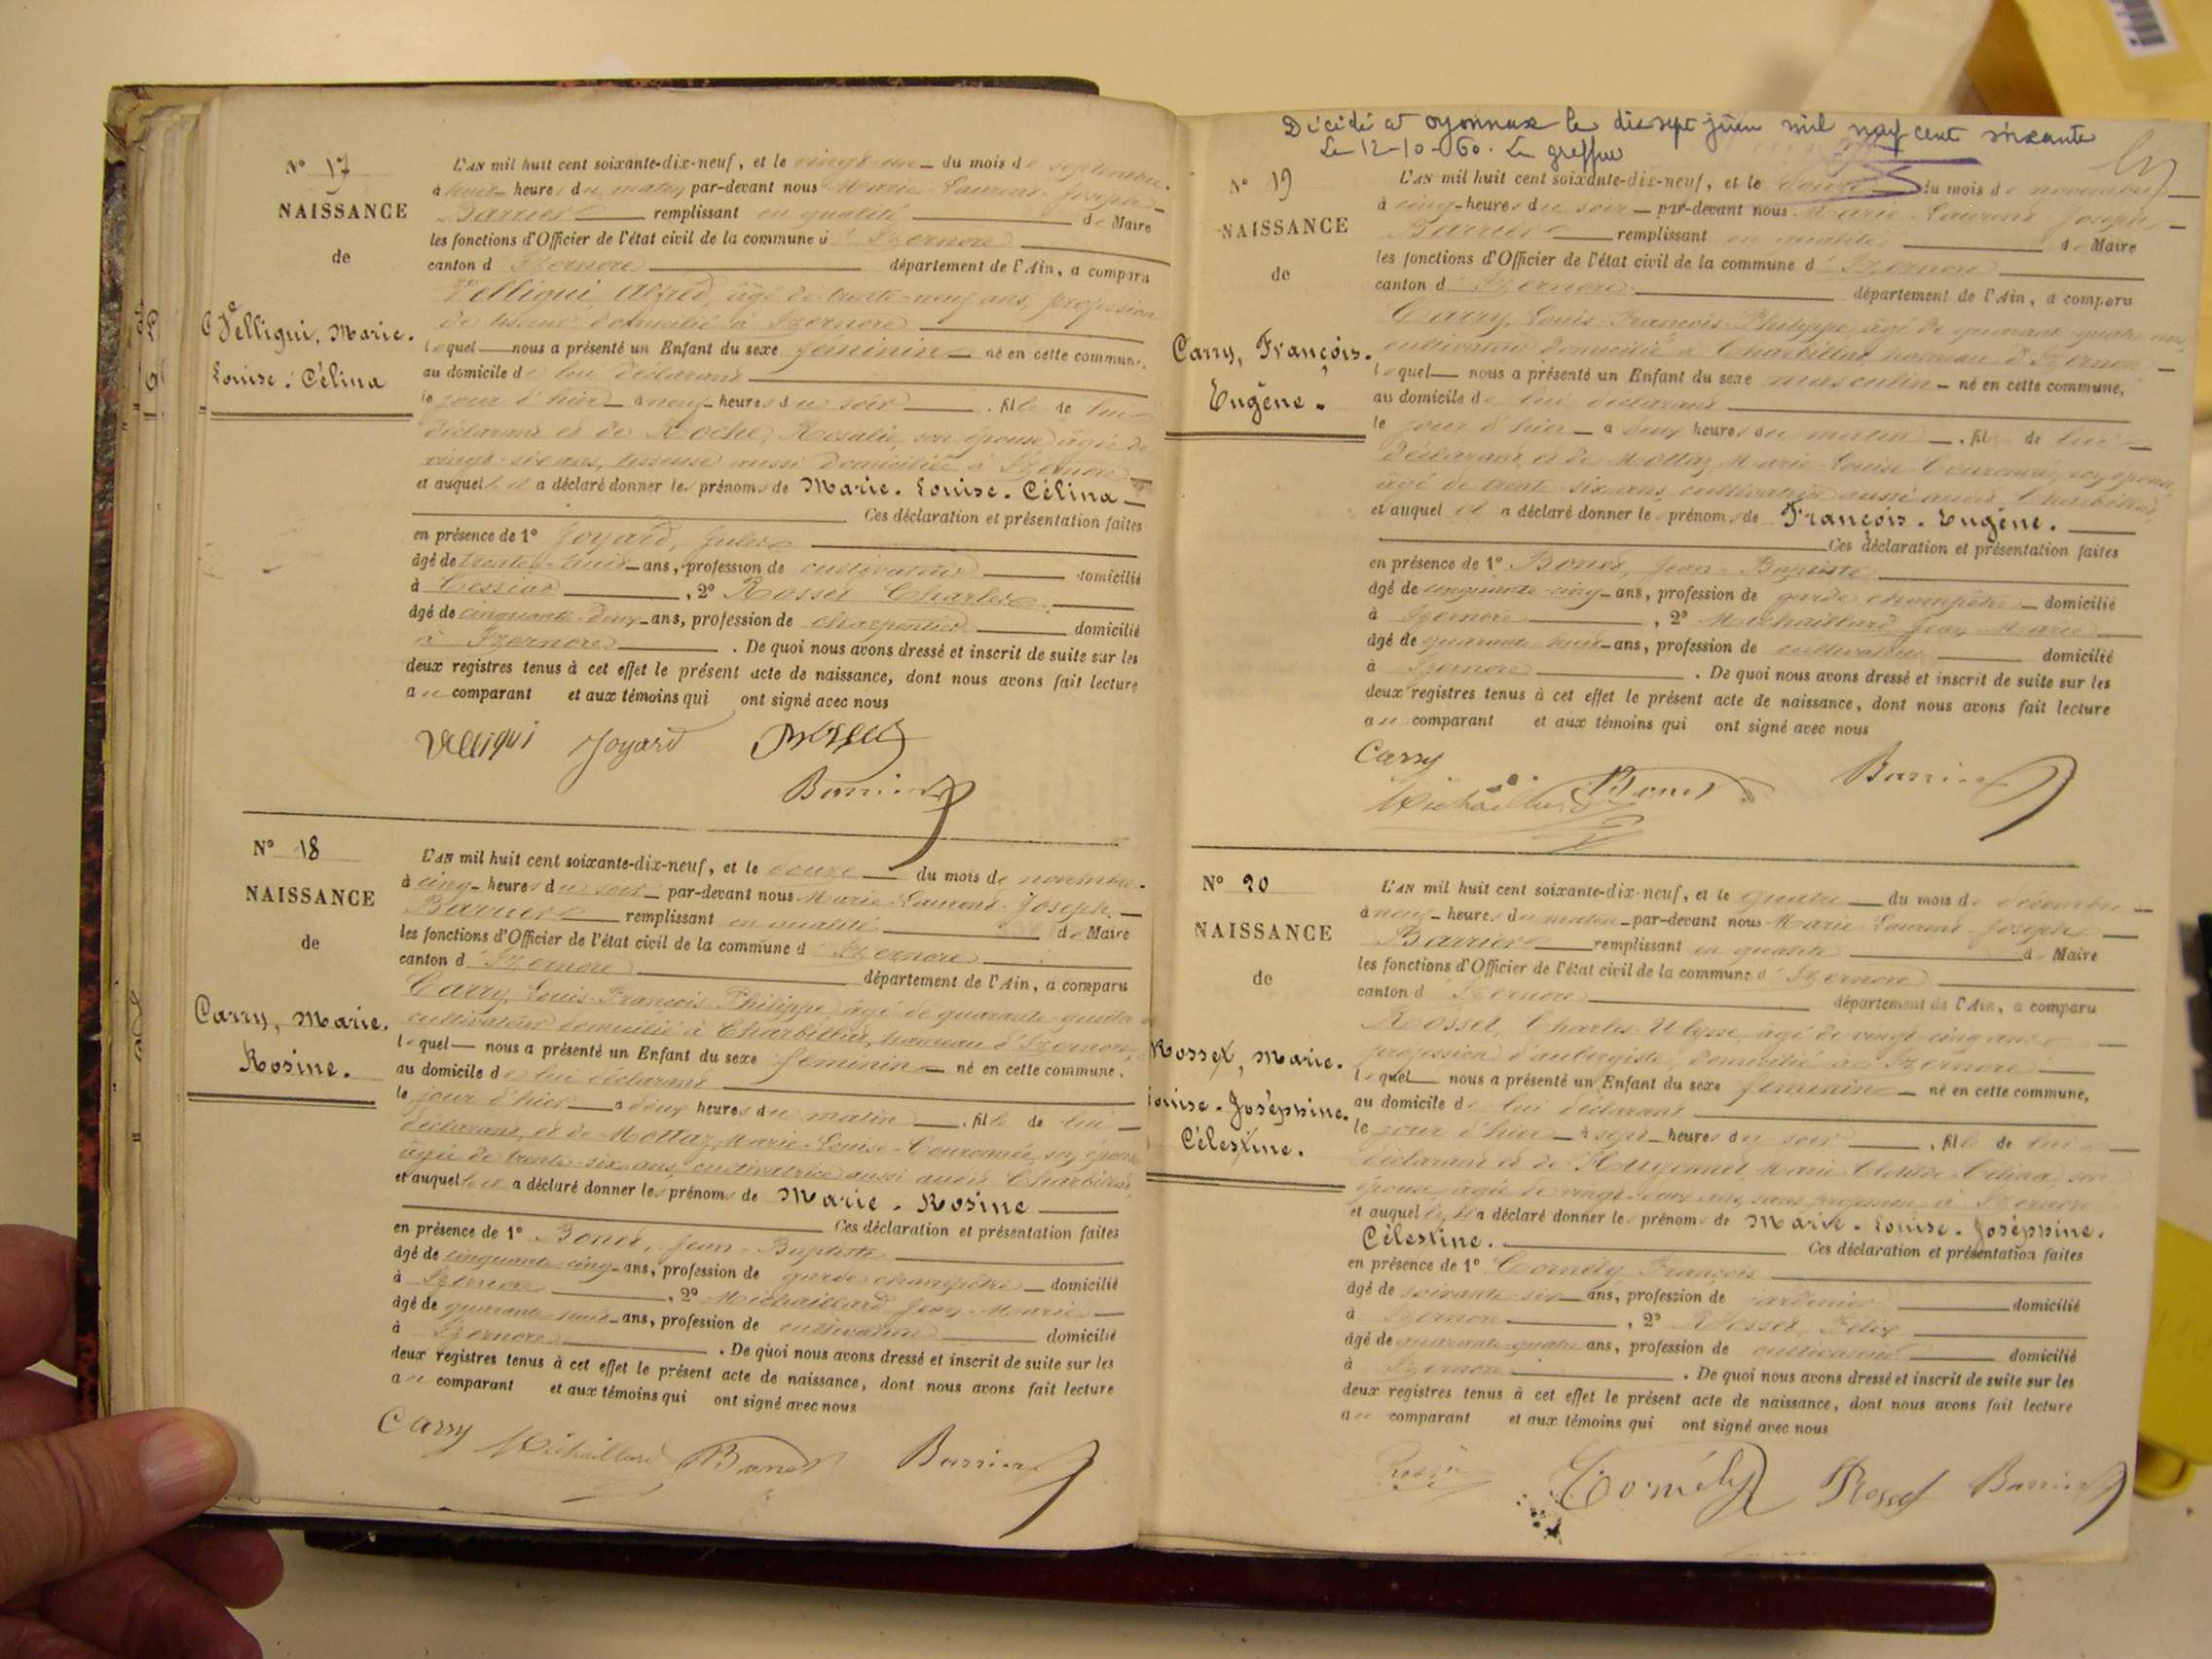 N° 17
NAISSANCE
de
Velliqui, Marie.
Louise. Célina
L'AN mil huit cent soixante-dix-neuf, et le vingt-un du mois de septembre.
à huit heures du matin, par-devant nous Marie Laurent Joseph
Barrier remplissant en qualité de Maire
les fonctions d'Officier de l'état civil de la commune d'Izernore
canton d'Izernore département de l'Ain, a comparu
Velliqui Alfred, âgé de trente-neuf ans, profession
de tisseur domicilié à Izernore
lequel nous a présenté un Enfant du sexe féminin né en cette commune,
au domicile de lui déclarant
le jour d'hier à neuf heures du soir, fille de lui
déclarant et de Roche, Rosalie, son épouse âgée de
vingt-six ans, tisseuse aussi domiciliée à Izernore
et auquel il a déclaré donner les prénoms de Marie. Louise. Célina
Ces déclaration et présentation faites
en présence de 1° Joyard, Jules
âgé de trente-huit ans, profession de cultivateur domicilié
à Cessiat, 2° Rosset Charles
âgé de cinquante-deux ans, profession de charpentier domicilié
à Izernore. De quoi nous avons dressé et inscrit de suite sur les
deux registres tenus à cet effet le présent acte de naissance, dont nous avons fait lecture
au comparant et aux témoins qui ont signé avec nous
Velliqui Joyard Rosset
Barrier
N° 18
NAISSANCE
de
Carry, Marie.
Rosine.
L'AN mil huit cent soixante-dix-neuf, et le douze du mois de novembre.
à cinq heures du soir par-devant nous Marie Laurent Joseph.
Barrier remplissant en qualité de Maire
les fonctions d'Officier de l'état civil de la commune d'Izernore
canton d'Izernore département de l'Ain, a comparu
Carry, Louis François Philippe, âgé de quarante-quatre
cultivateur domicilié à Charbillat, hameau d'Izernore,
lequel nous a présenté un Enfant du sexe féminin né en cette commune,
au domicile de lui déclarant
le jour d'hier à deux heures du matin, fille de lui
déclarant, et de Mottaz, Marie-Louise-Couronnée, son épouse
âgée de trente-six ans, cultivatrice aussi audit Charbillat,
et auquel il a déclaré donner les prénoms de Marie. Rosine
Ces déclaration et présentation faites
en présence de 1° Bonet, Jean-Baptiste
âgé de cinquante-cinq ans, profession de garde champêtre domicilié
à Izernore, 2° Michaillard Jean-Marie
âgé de quarante-huit ans, profession de cultivateur domicilié
à Izernore. De quoi nous avons dressé et inscrit de suite sur les
deux registres tenus à cet effet le présent acte de naissance, dont nous avons fait lecture
au comparant et aux témoins qui ont signé avec nous
Carry Michaillard Bonet Barrier
Décédé à Oyonnax le dix sept juin mil neuf cent soixante
Le 12-10-60. Le greffier
N° 19
NAISSANCE
de
Carry, François.
Eugène.
L'AN mil huit cent soixante-dix-neuf, et le douze du mois de novembre
à cinq heures du soir par-devant nous Marie Laurent Joseph
Barrier remplissant en qualité de Maire
les fonctions d'Officier de l'état civil de la commune d'Izernore
canton d'Izernore département de l'Ain, a comparu
Carry, Louis-François-Philippe, âgé de quarante-quatre ans,
cultivateur domicilié à Charbillat hameau d'Izernore
lequel nous a présenté un Enfant du sexe masculin né en cette commune,
au domicile de lui déclarant
le jour d'hier à deux heures du matin, fils de lui
déclarant, et de Mottaz Marie Louise Couronnée, son épouse,
âgé de trente-six ans, cultivatrice aussi audit Charbillat,
et auquel il a déclaré donner les prénoms de François. Eugène.
Ces déclaration et présentation faites
en présence de 1° Bonet, Jean-Baptiste
âgé de cinquante-cinq ans, profession de garde champêtre domicilié
à Izernore, 2° Michaillard Jean Marie
âgé de quarante-huit ans, profession de cultivateur domicilié
à Izernore. De quoi nous avons dressé et inscrit de suite sur les
deux registres tenus à cet effet le présent acte de naissance, dont nous avons fait lecture
au comparant et aux témoins qui ont signé avec nous
Carry
Michaillard Bonet Barrier
N° 20
NAISSANCE
de
Rosset, Marie.
Louise-Joséphine.
Célestine.
L'AN mil huit cent soixante-dix-neuf, et le quatre du mois de décembre
à neuf heures du matin par-devant nous Marie Laurent Joseph
Barrier remplissant en qualité de Maire
les fonctions d'Officier de l'état civil de la commune d'Izernore
canton d'Izernore département de l'Ain, a comparu
Rosset, Charles-Ulysse, âgé de vingt-cinq ans
profession d'aubergiste, domicilié à Izernore
lequel nous a présenté un Enfant du sexe féminin né en cette commune,
au domicile de lui déclarant
le jour d'hier à sept heures du soir, fille de lui
déclarant et de Hugonnet Marie Célina, son
épouse, âgée de vingt-deux ans, sans profession à Izernore
et auquel il a déclaré donner les prénoms de Marie. Louise. Joséphine.
Célestine.
Ces déclaration et présentation faites
en présence de 1° Cornély François
âgé de soixante-six ans, profession de jardinier domicilié
à Izernore, 2° Rosset, Félix
âgé de quarante-quatre ans, profession de cultivateur domicilié
à Izernore. De quoi nous avons dressé et inscrit de suite sur les
deux registres tenus à cet effet le présent acte de naissance, dont nous avons fait lecture
au comparant et aux témoins qui ont signé avec nous
Rosset Cornély Rosset Barrier